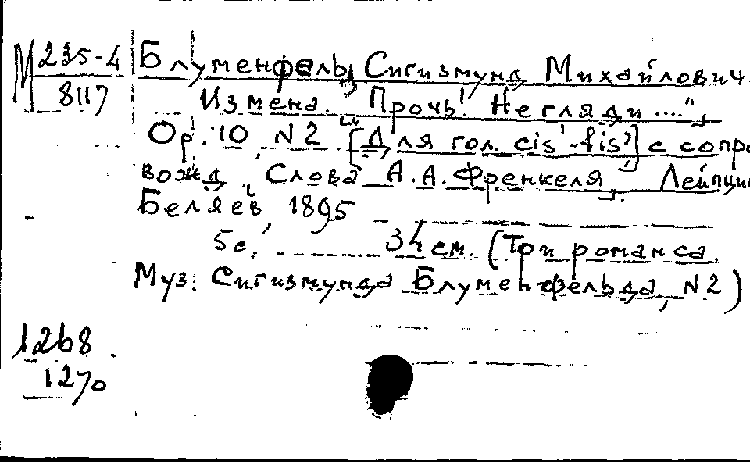 М 235-4
8117
Блуменфельд, Сигизмунд Михайлович.
Измена. "Прочь! Не гляди...."
Op. 10 N 2 [Для гол. cis¹-fis²] с сопро
вожд. Слова А.А. Френкеля. Лейпциг
Беляев, 1895
5с. 34 см. (Три романса.
Муз. Сигизмунда Блуменфельда, N2)
1268
1270